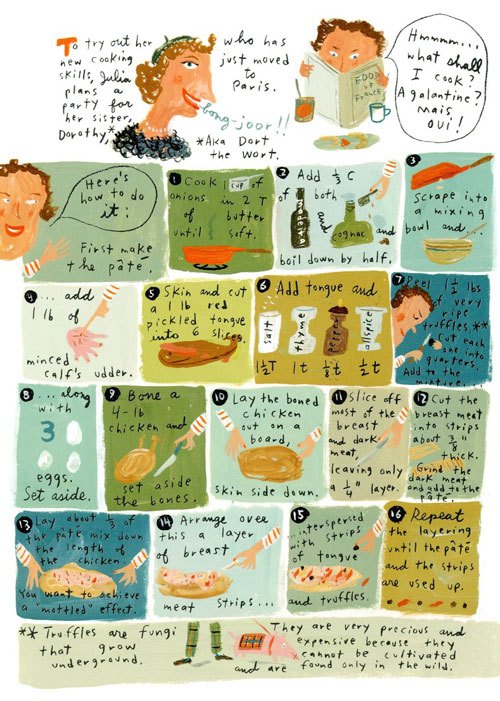 To try out her
new cooking
skills, Julia
plans a
party for
her sister,
Dorothy,*
who has
just moved
to
Paris.
bong-joor!!
*Aka Dort
the Wort.
FOOD
of
FRANCE
Hmmmm...
what shall
I cook?
A galantine?
Mais
oui!
Here's
how to do
it:
First make
the pâté.
1 Cook 1 cup of
onions in 2 T
of butter
until soft.
2 Add 1/3 C
of both
madeira
and
cognac and
boil down by half.
3
Scrape into
a mixing
bowl and...
4 ... add
1 lb of
minced
calf's udder.
5 Skin and cut
a 1 lb red
pickled tongue
into 6 slices.
6 Add tongue and
salt
thyme
pepper
allspice
1½T 1t ½t ½t
7 Peel 1½ lbs
of very
ripe
truffles.**
Cut each
one into
quarters.
Add to the
mixture...
8 ... along
with
3
eggs.
Set aside.
9 Bone a
4-lb
chicken and
set aside
the bones.
10 Lay the boned
chicken
out on a
board,
skin side down.
11 Slice off
most of the
breast
and dark
meat,
leaving only
a ¼" layer.
12 Cut the
breast meat
into strips
about 3/8"
thick.
Grind the
dark meat
and add to the
pâté.
13 Lay about 1/3 of
the pâté mix down
the length of
the chicken.
You want to achieve
a "mottled" effect.
14 Arrange over
this a layer
of breast
meat strips...
15
...interspersed
with strips
of tongue
and truffles.
16 Repeat
the layering
until the pâté
and the strips
are used up.
** Truffles are fungi
that grow
underground.
They are very precious and
expensive because they
cannot be cultivated
and are found only in the wild.